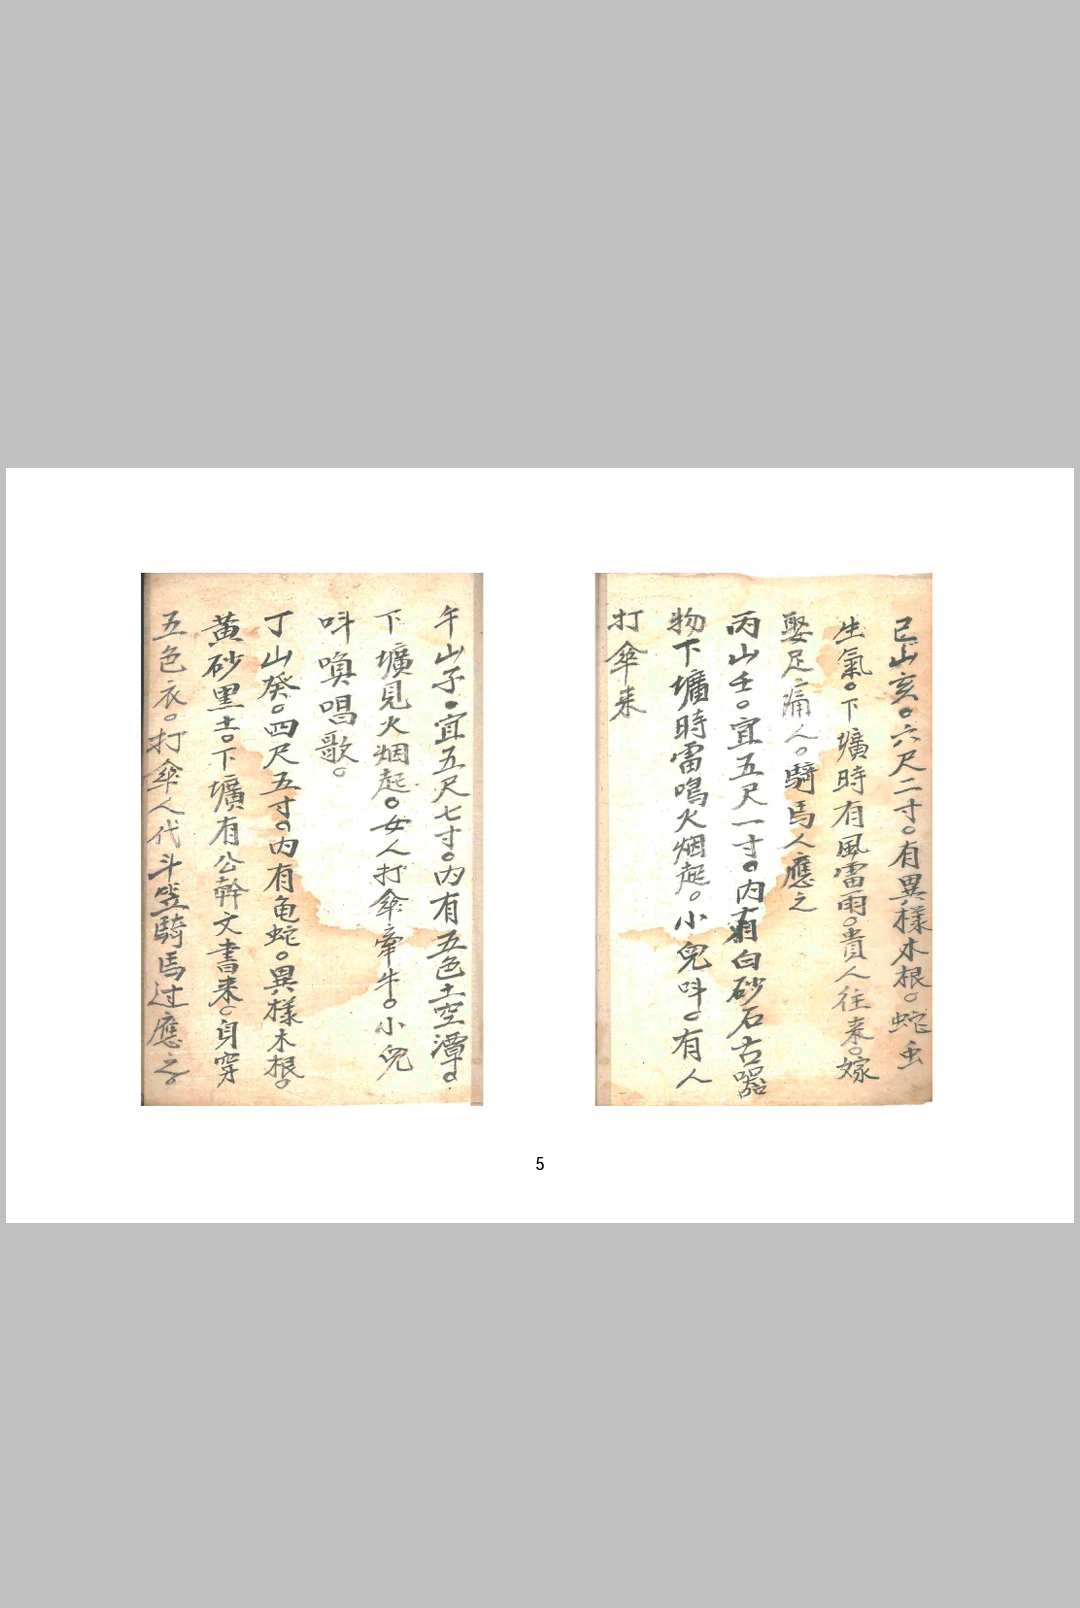 巳山亥。六尺二寸。有異樣木根。蛇虫
生氣。下壙時有風雷雨。貴人往来。嫁
娶足痛人。騎馬人應之
丙山壬。宜五尺一寸。内有白砂石古器
物下壙時雷鳴火烟起。小兒呌。有人
打傘来
午山子。宜五尺七寸。内有五色土空潭。
下壙見火烟起。女人打傘牽牛。小兒
呌喚唱歌。
丁山癸。四尺五寸。内有龟蛇。異樣木根。
黃砂黑土。下壙有公幹文書来。身穿
五色衣。打傘人代斗笠騎馬过應之。
5